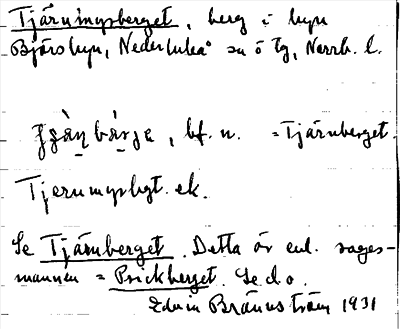 Tjärnmyrsberget, berg i byn
Björsbyn, Nederluleå sn ö tg, Norrb. l.
bf. n. = Tjärnberget.
Tjernmyrsbgt. ek.
Se Tjärnberget. Detta är enl. sages-
mannen = Prickberget. Se d. o.
Edvin Brännström 1931